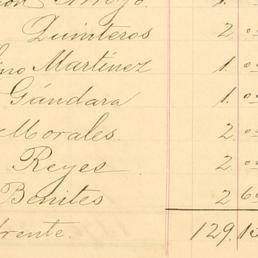 Arroyo 1.
Quinteros 2.
Martínez 1.
Gándara 1.
Morales. 2.
Reyes 2.
Benites 2
frente. 129.